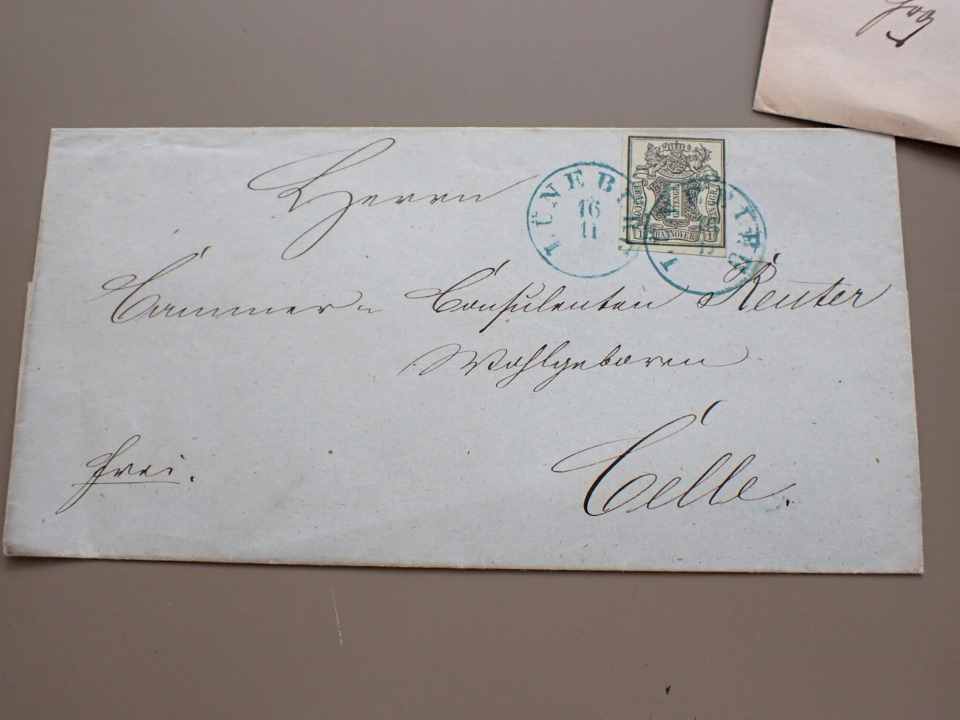 Herrn
Cammer- Consulenten Reuter
Wohlgeboren
Celle.
frei.
LÜNEBURG
16
11
HANNOVER